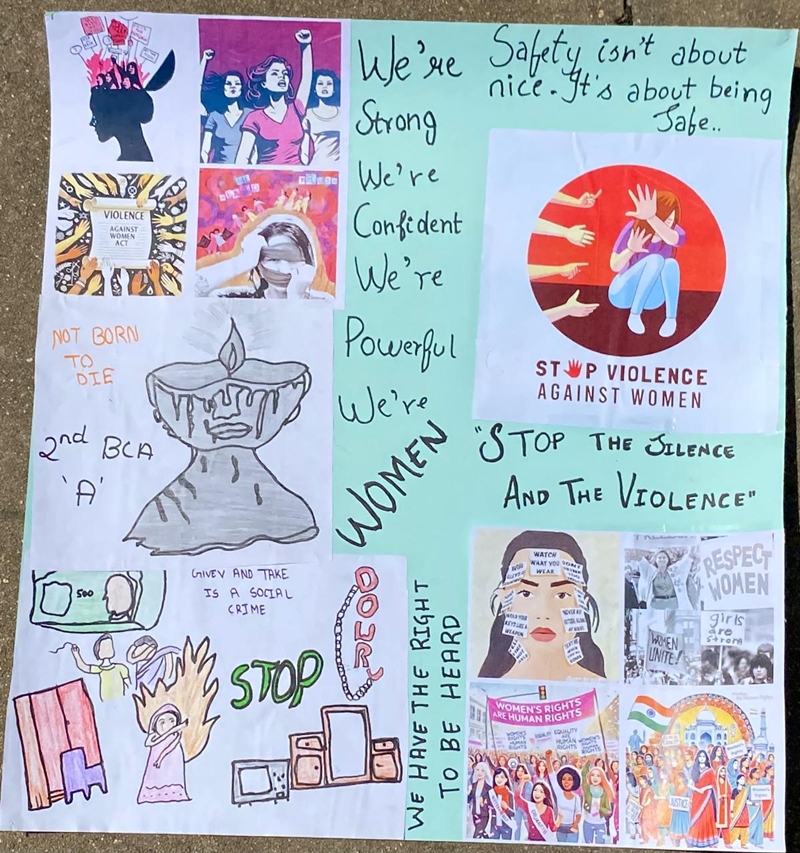 We're
Strong
We're
Confident
We're
Powerful
We're
WOMEN
Safety isn't about
nice. It's about being
Safe..
VIOLENCE
AGAINST
WOMEN
ACT
STOP VIOLENCE
AGAINST WOMEN
NOT BORN
TO
DIE
2nd BCA
'A'
"STOP THE SILENCE
AND THE VIOLENCE"
500
GIVEV AND TAKE
IS A SOCIAL
CRIME
STOP
DOURY
WE HAVE THE RIGHT
TO BE HEARD
WATCH
WHAT YOU
WEAR
RESPECT
WOMEN
WOMEN
UNITE!
girls
are
strong
WOMEN'S RIGHTS
ARE HUMAN RIGHTS
JUSTICE